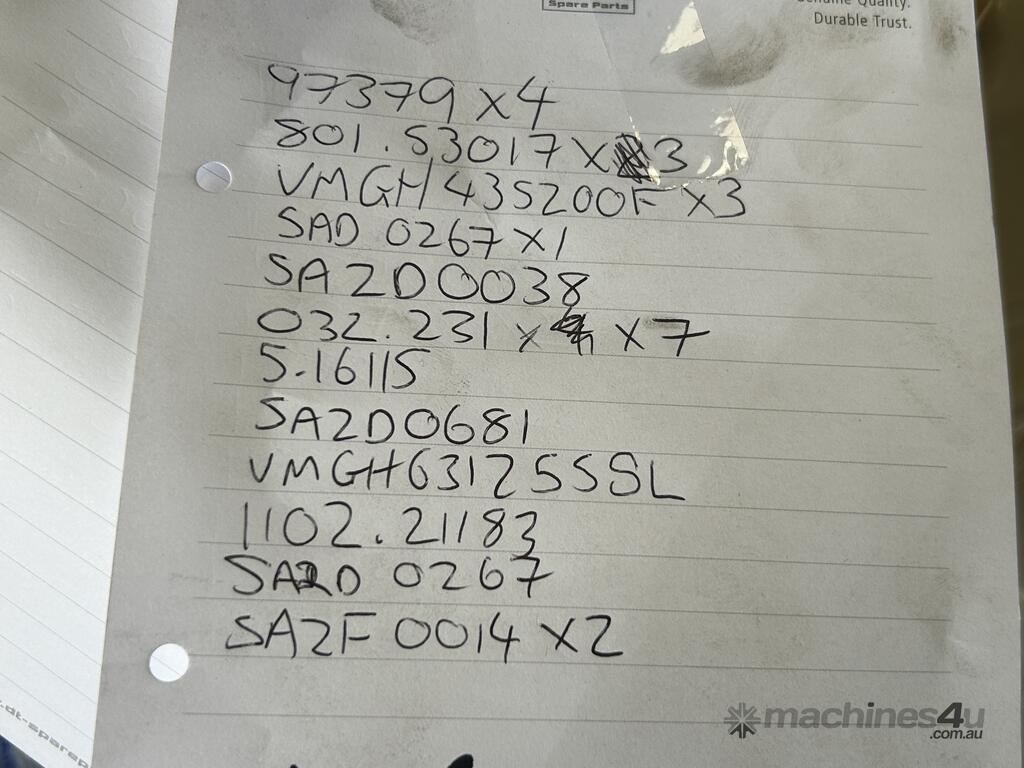 Spare Parts
Genuine Quality.
Durable Trust.
97379 X 4
801.53017 X 3
VMGH435200F X3
SAD 0267 X 1
SA2D0038
032.231 x X 7
5.16115
SA2D0681
VMGH63125SSL
1102.21183
SA2D 0267
SA2F 0014 X2
machines4u
.com.au